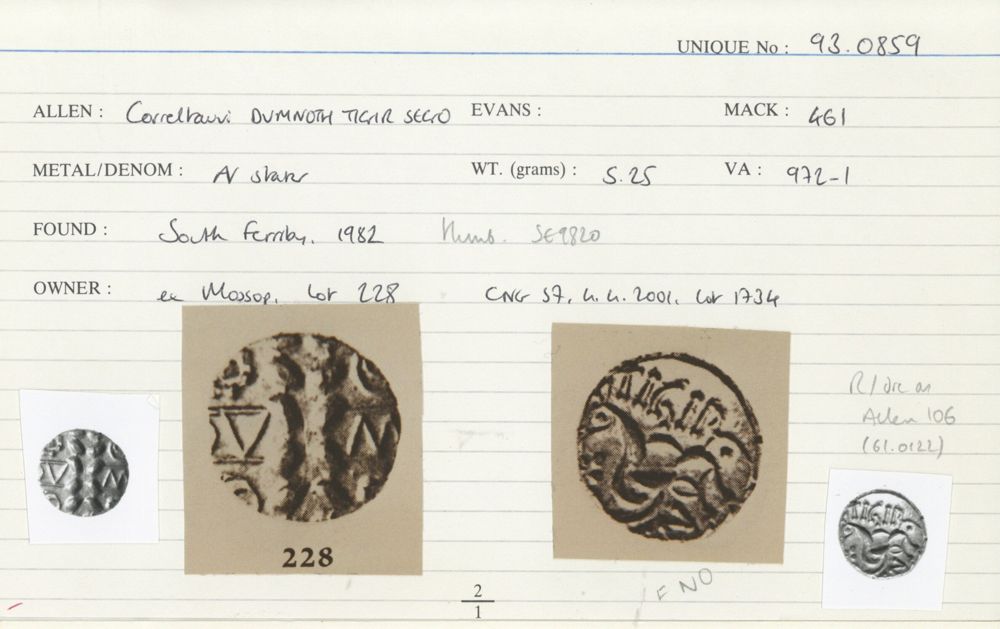 UNIQUE No : 93.0859
ALLEN : Correltauvi DUMNOTH TIGIR SEGO EVANS : MACK : 461
METAL/DENOM : AV stater WT. (grams) : 5.25 VA : 972-1
FOUND : South Ferriby. 1982 Humb. SE9820
OWNER : ex Mossop, lot 228 CNG 57, 4.4.2001, lot 1734
R/die as
Allen 106
(61.0122)
228
2
1
F NO